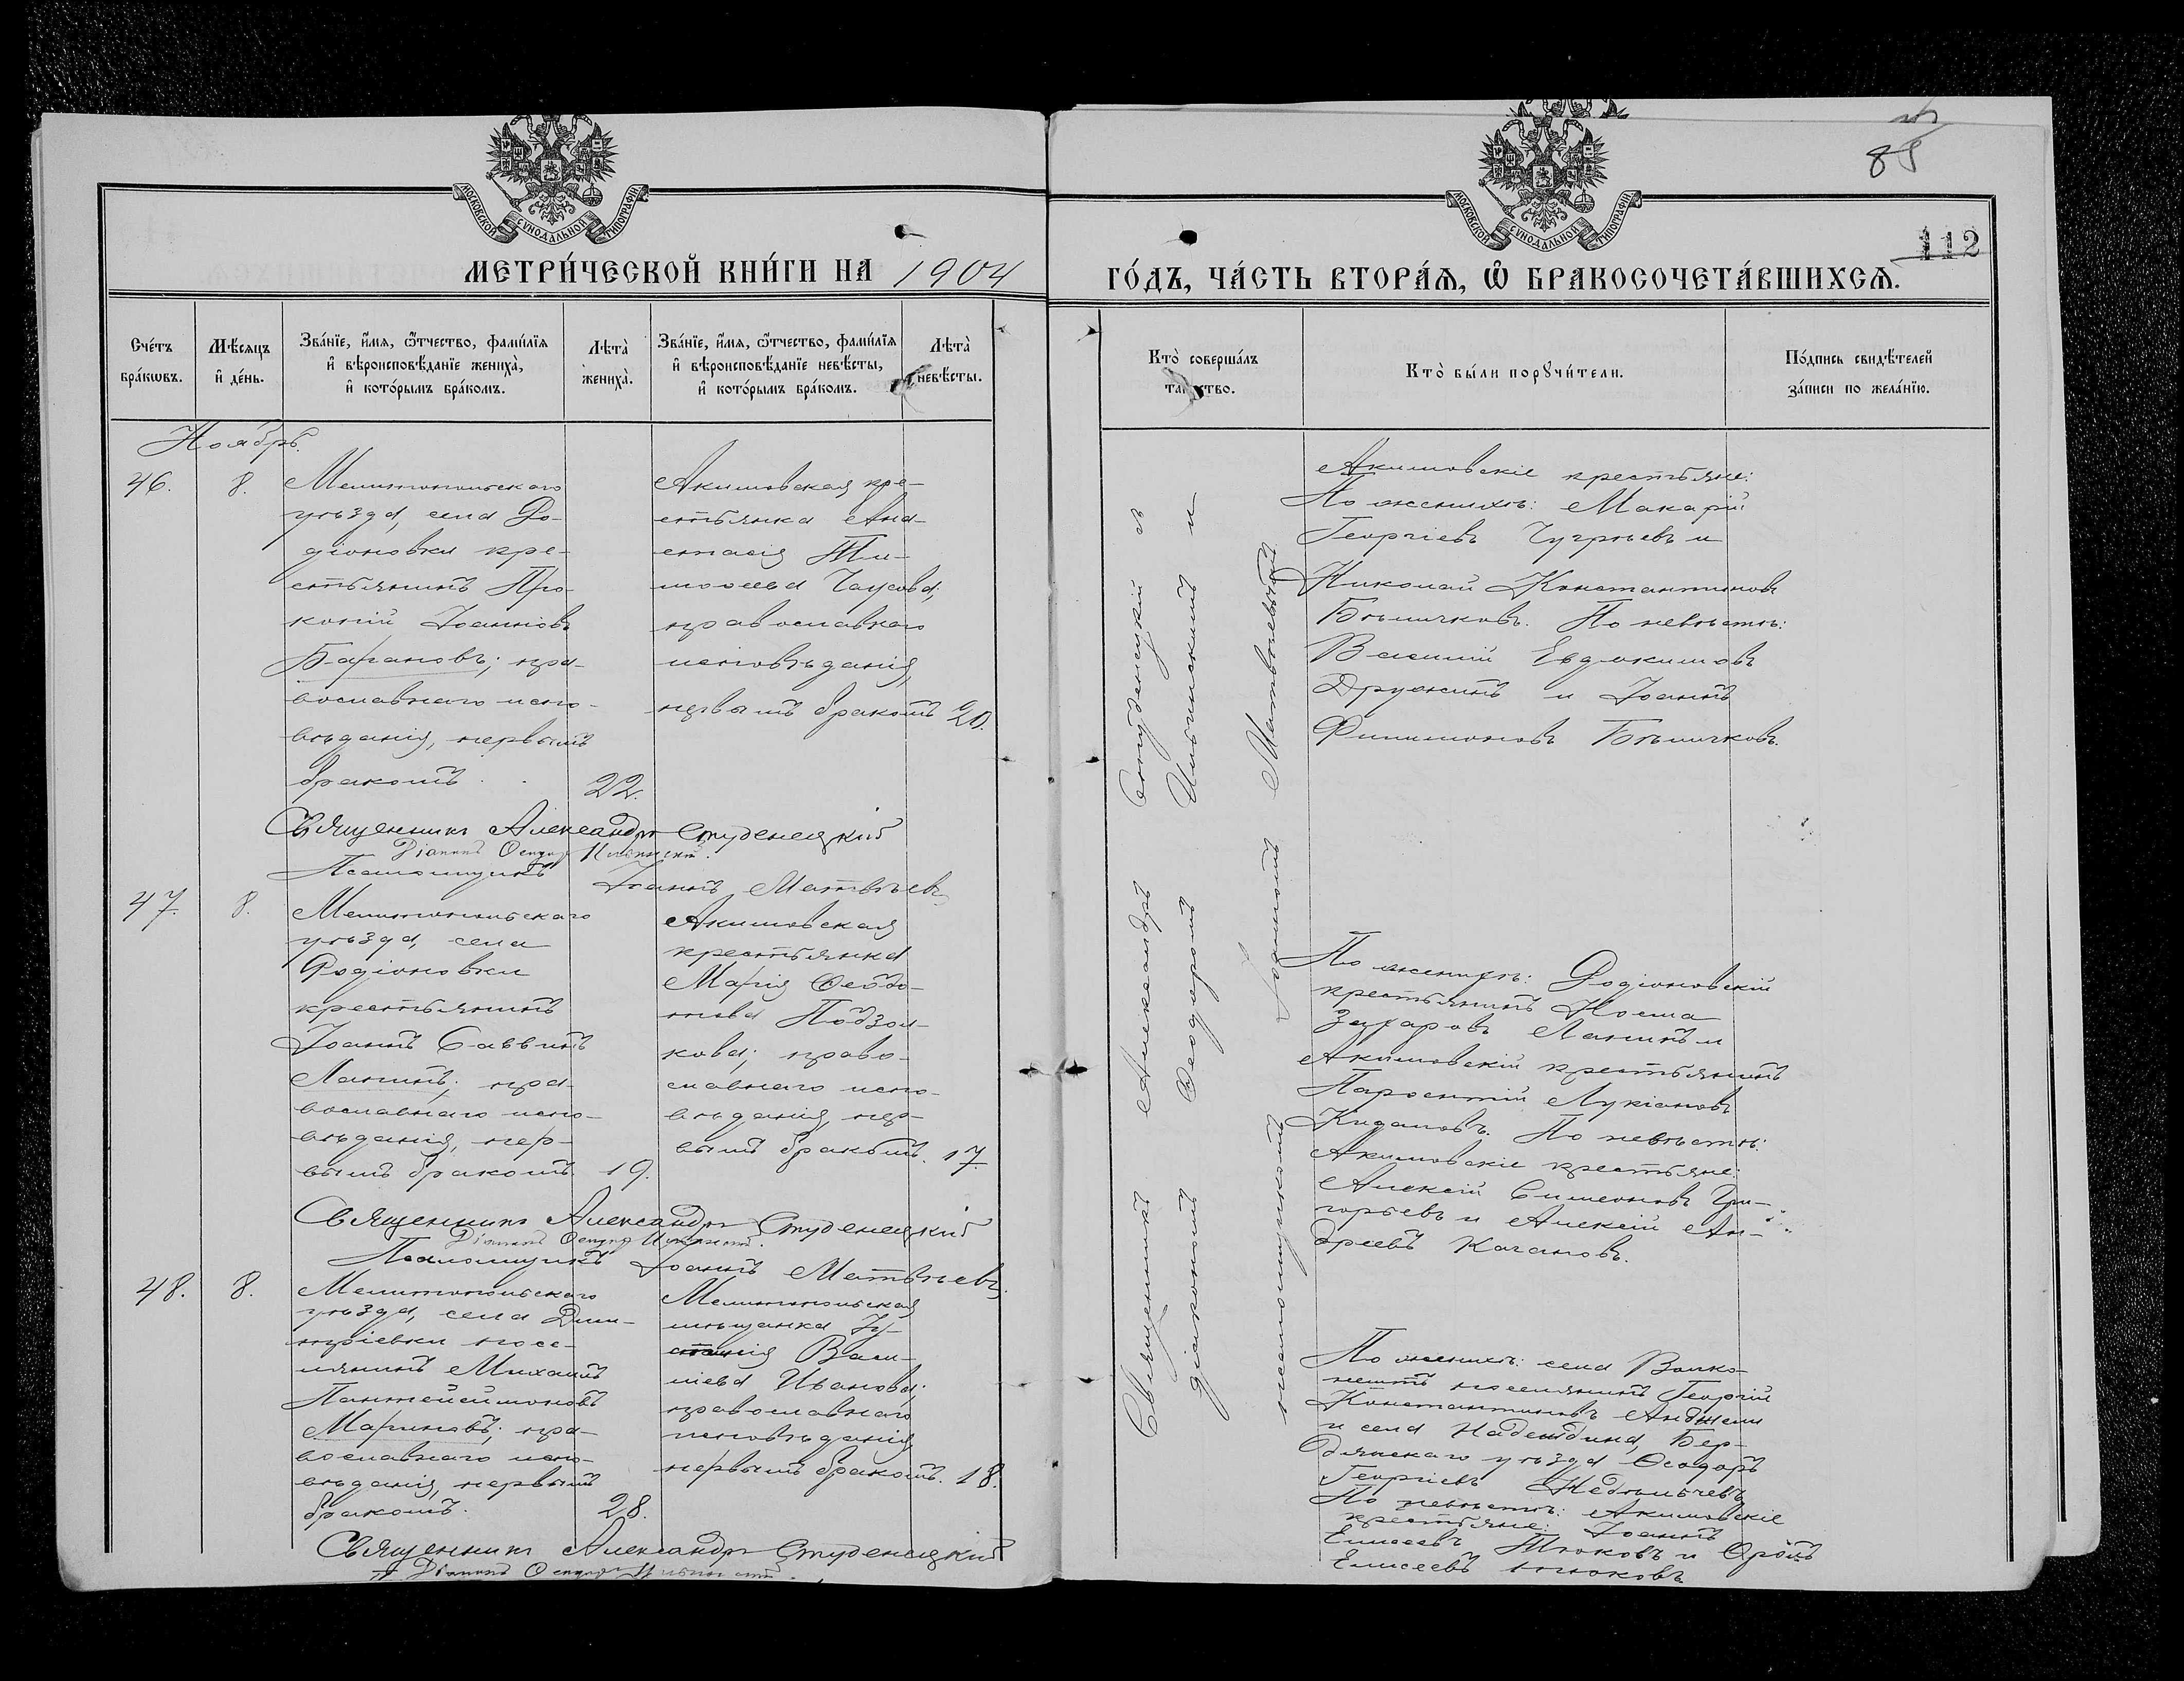 МОСКОВСКОЙ СѴНОДАЛЬНОЙ ТИПОГРАФІИ
МЕТРИ́ЧЕСКОЙ КНИ́ГИ НА 1904
Сче́тъ бра́кωвъ.
Мѣ́сяцъ и҆ де́нь.
Зва́нїе, и҆́мя, ѿтчество, фами́лїя
и҆ вѣроисповѣ́данїе жениха̀,
и҆ кото́рымъ бра́комъ.
Лѣта̀ жениха̀.
Зва́нїе, и҆́мя, ѿтчество, фами́лїя
и҆ вѣроисповѣ́данїе невѣ́сты,
и҆ кото́рымъ бра́комъ.
Лѣта̀ невѣ́сты.
Ноябрь.
46.
8.
Мелитопольскаго
уѣзда, села Ро-
діоновки кре-
стьянинъ Про-
копій Іоанновъ
Барановъ; пра-
вославнаго испо-
вѣданія, первымъ
бракомъ.
22.
Акимовская кре-
стьянка Ана-
стасія Ти-
моѳеева
православнаго
исповѣданія,
первымъ бракомъ
20.
Священникъ Александръ Студенецкій
Діаконъ Ѳеодоръ Ильинскій.
Псаломщикъ Іоаннъ Матвѣевъ
47.
8.
Мелитопольскаго
уѣзда, села
Родіоновки
крестьянинъ
Іоаннъ Саввинъ
Лапинъ; пра-
вославнаго испо-
вѣданія, пер-
вымъ бракомъ
19.
Акимовская
крестьянка
Марія Ѳеодо-
това Подзол-
кова; право-
славнаго испо-
вѣданія, пер-
вымъ бракомъ.
17.
Священникъ Александръ Студенецкій
Діаконъ Ѳеодоръ Ильинскій.
Псаломщикъ Іоаннъ Матвѣевъ
48.
8.
Мелитопольскаго
уѣзда, села Дми-
тріевки посе-
лянинъ Михаилъ
Пантелеимоновъ
Мариновъ; пра-
вославнаго испо-
вѣданія, первымъ
бракомъ.
28.
Мелитопольская
мѣщанка
Васи-
ліева Иванова;
православнаго
исповѣданія
первымъ бракомъ.
18.
Священникъ Александръ Студенецкій
Діаконъ Ѳеодоръ Ильинскій.
85
МОСКОВСКОЙ СѴНОДАЛЬНОЙ ТИПОГРАФІИ
112
ГО́ДЪ, ЧА́СТЬ ВТОРА́Я, Ѡ҆ БРАКОСОЧЕТА́ВШИХСЯ.
Кто̀ соверша́лъ
та́инство.
Кто̀ бы́ли порꙋчи́тели.
По́дпись свидѣ́телей
за́писи по жела́нїю.
Священникъ Александръ Студенецкій съ
діакономъ Ѳеодоромъ Ильинскимъ и
псаломщикомъ Іоанномъ Матвѣевымъ
Акимовскіе крестьяне:
По женихѣ: Макарій
Георгіевъ Чугрѣевъ и
Николай Константиновъ
Бѣличковъ. По невѣстѣ:
Василій Евдокимовъ
Дружинъ и Іоаннъ
Филимоновъ Бѣличковъ.
По женихѣ: Родіоновскій
крестьянинъ Косма
Захаровъ Лапинъ и
Акимовскій крестьянинъ
Парѳентій Лукіановъ
Кидаловъ. По невѣстѣ:
Акимовскіе крестьяне:
Алексій Симеоновъ Гри-
горьевъ и Алексій Ан-
дреевъ Качановъ.
По женихѣ: села Волко-
нешть поселянинъ Георгій
Константиновъ
и села Надеждина, Бер-
дянскаго уѣзда Ѳеодоръ
Георгіевъ Недѣльчевъ
По невѣстѣ: Акимовскіе
крестьяне: Іоаннъ
Елисеевъ Тюковъ и Фролъ
Елисеевъ Тюковъ